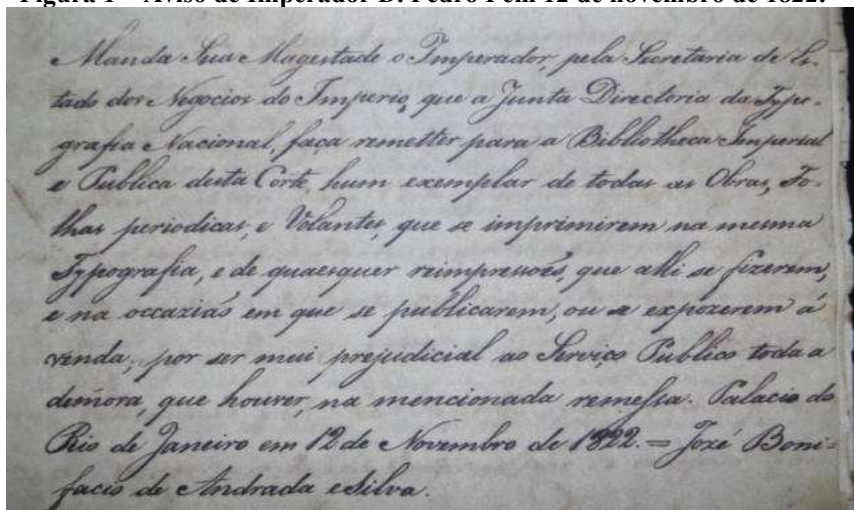 Figura 1 – Aviso de Imperador D. Pedro I em 12 de novembro de 1822.
Manda Sua Magestade o Imperador, pela Secretaria de Es-
tado dos Negocios do Imperio, que a Junta Directoria da Typo-
grafia Nacional, faça remetter para a Bibliotheca Imperial
e Publica desta Corte, hum exemplar de todas as Obras, Fo-
lhas periodicas, e Volantes, que se imprimirem na mesma
Typografia, e de quaesquer reimpressoẽs, que alli se fizerem,
e na occaziaõ em que se publicarem, ou se expozerem á
venda; por ser mui prejudicial ao Serviço Publico toda a
demora, que houver, na mencionada remessa. Palacio do
Rio de Janeiro em 12 de Novembro de 1822. = Jozé Boni=
facio de Andrada e Silva.